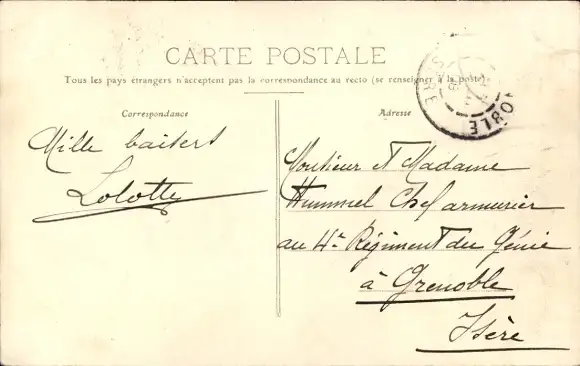 CARTE POSTALE
Tous les pays étrangers n'acceptent pas la correspondance au recto (se renseigner à la poste)
Correspondance
Adresse
Mille baisers
Lolotte
Monsieur et Madame
Hummel Chef armurier
au 4e Régiment du Génie
à Grenoble
Isère